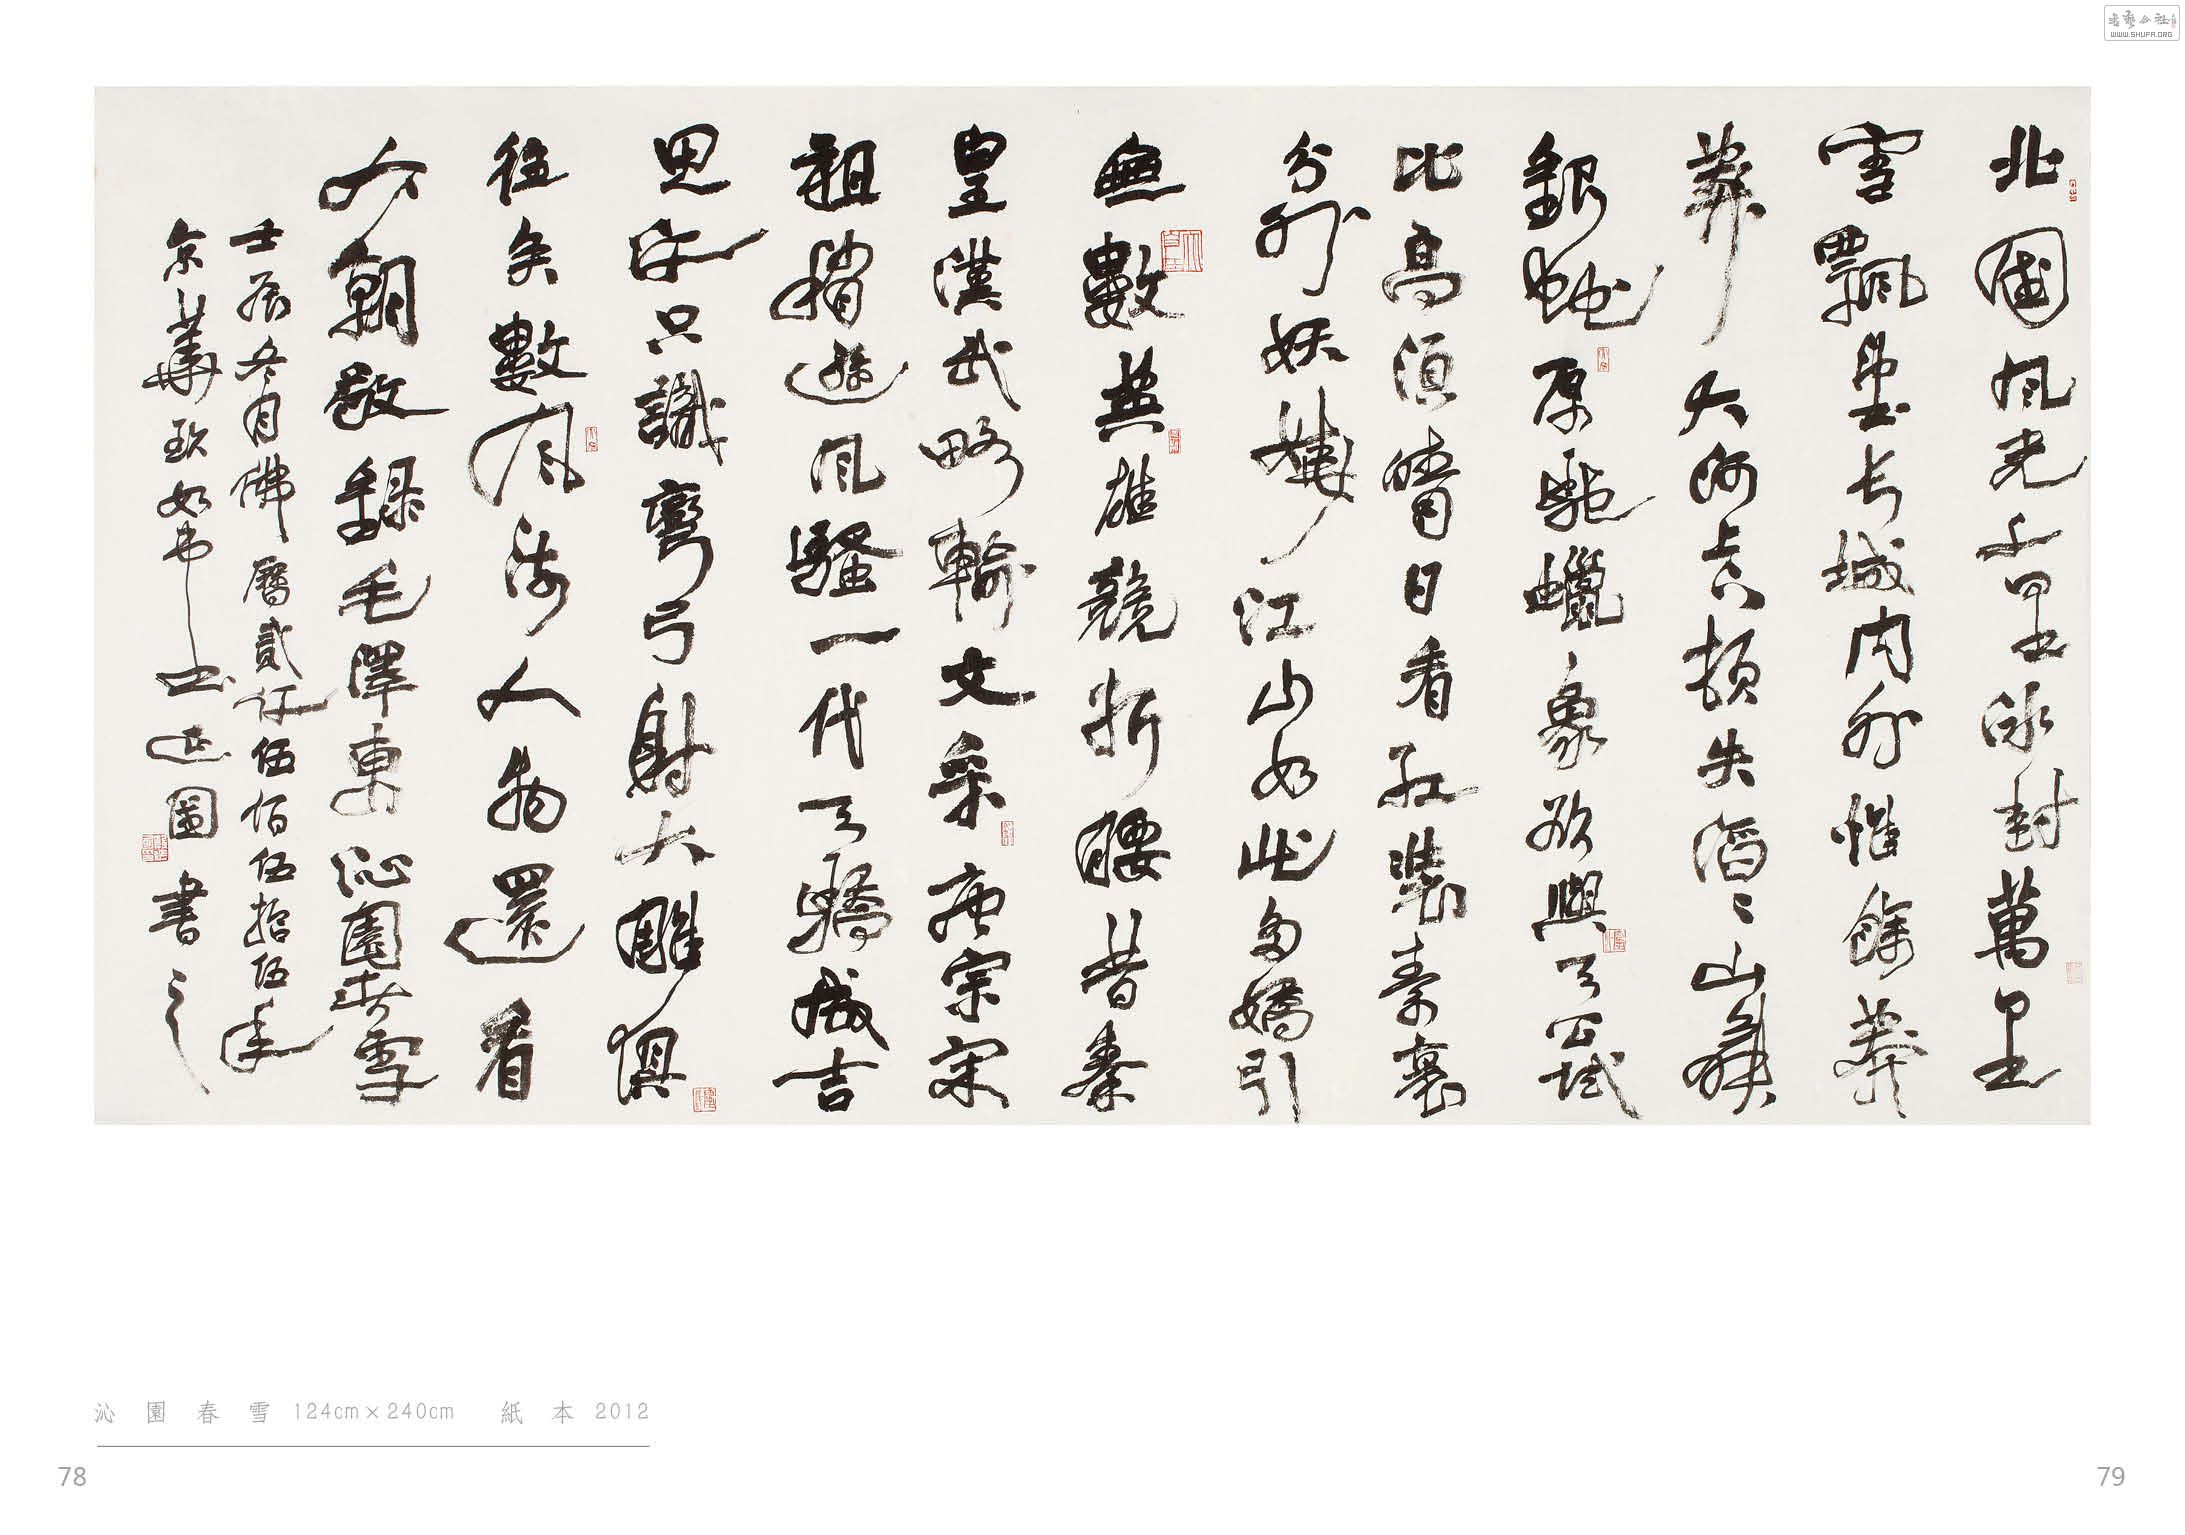 北國風光千里冰封萬里
雪飄望長城内外惟餘莽
莽大河上下頓失滔〻山舞
銀蛇原馳蠟象欲與天公試
比高須晴日看紅裝素裹
分外妖嬈江山如此多嬌引
無數英雄競折腰昔秦
皇漢武略輸文采唐宗宋
祖稍遜風騷一代天驕成吉
思汗只識彎弓射大雕俱
往矣數風流人物還看
今朝敬録毛澤東沁園春雪
壬辰冬月佛曆貳仟伍佰伍拾伍年
京華 如 圖書之
沁園春雪 124cm×240cm 紙本 2012
78
79
WWW.SHUFA.ORG